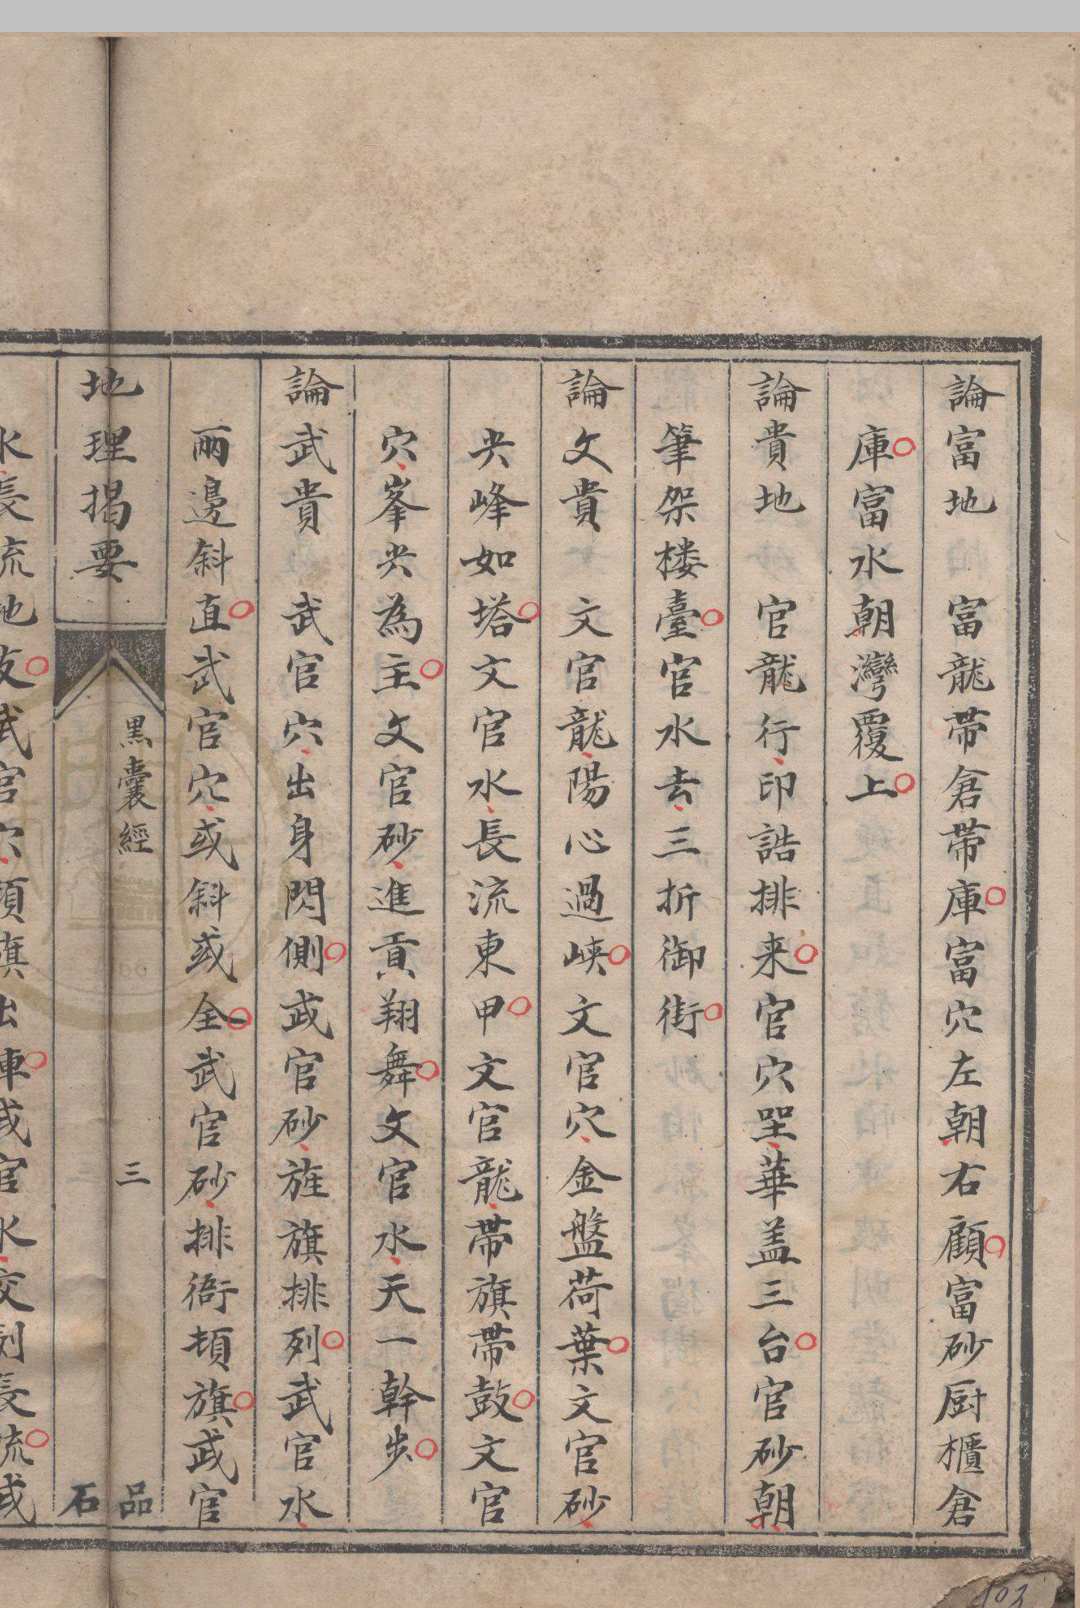 論富地　富龍帶倉帶庫富穴左朝右顧富砂厨櫃倉
庫富水朝灣覆上
論貴地　官龍行印誥排来官穴坐華盖三台官砂朝
筆架楼臺官水去三折御街
論文貴　文官龍陽心過峡文官穴金盤荷葉文官砂
央峰如塔文官水長流東甲文官龍帶旗帶鼓文官
穴峯央為主文官砂進貢翔舞文官水天一幹步
論武貴　武官穴出身閃側武官砂旌旗排列武官水
兩邊斜直武官穴或斜或全武官砂排衙頓旗武官
地理揭要
黑囊經
三
品石
水長流地支武官穴頭旗出陣武官水交劍長流武